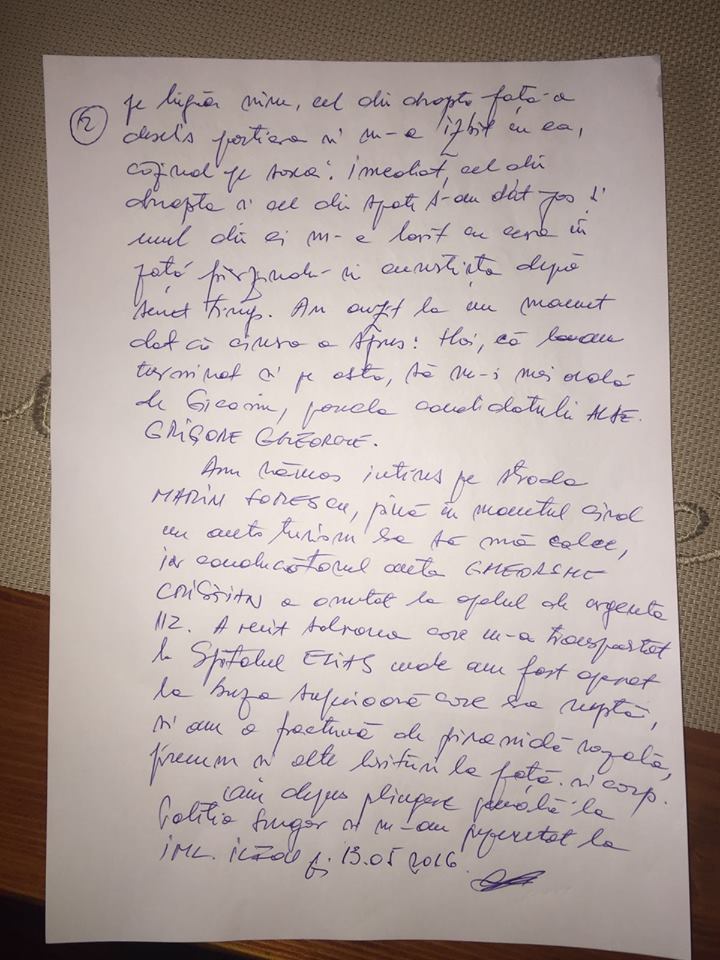 2
pe lîngă mine, cel din dreapta față a
deschis portiera și m-a izbit cu ea,
căzînd pe șosea. imediat, cel din
dreapta și cel din spate s-au dat jos și
unul din ei m-a lovit cu ceva în
față pierzîndu-mi cunoștința după
scurt timp. Am auzit la un moment
dat că cineva a spus: Hai, că l-am
terminat și pe ăsta, să m-i mai
de candidatului
GRIGORE GHEORGHE.
Am rămas întins pe strada
MARIN SORESCU, pînă în momentul cînd
un autoturism sa să mă calce,
iar conducătorul auto GHEORGHE
CRISTIAN a anunțat la apelul de urgență
112. A venit Adriana care m-a transportat
la Spitalul ELIAS unde am fost operat
la buza superioară care sa ruptă,
și am o fractură de piramidă nazală,
precum și alte lovituri la față și corp.
am depus plîngere penală la
Poliția și m-am prezentat la
IML. 13.05 2016.